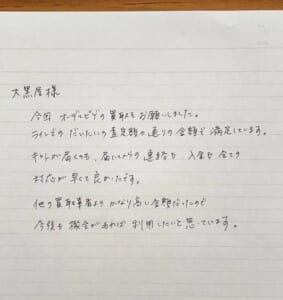 大黒屋様
今回 オーデマピゲの買取をお願いしました。
ラインでのだいたいの査定額の通りの金額で満足しています。
キットが届くのも、届いてからの連絡も、入金も全ての
対応が早くて良かったです。
他の買取業者よりかなり高い金額だったので
今後も機会があれば利用したいと思っています。